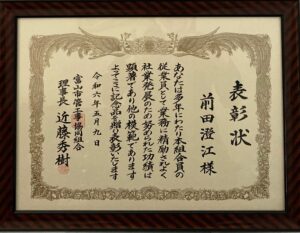 表彰状
前田澄江様
あなたは多年にわたり本組合員の
従業員として業務に精励されよく
社業発展のため努められた功績は
顕著であり他の模範であります
よってここに記念品を贈り表彰いたします
令和六年五月九日
富山市管工事協同組合
理事長 近藤秀樹